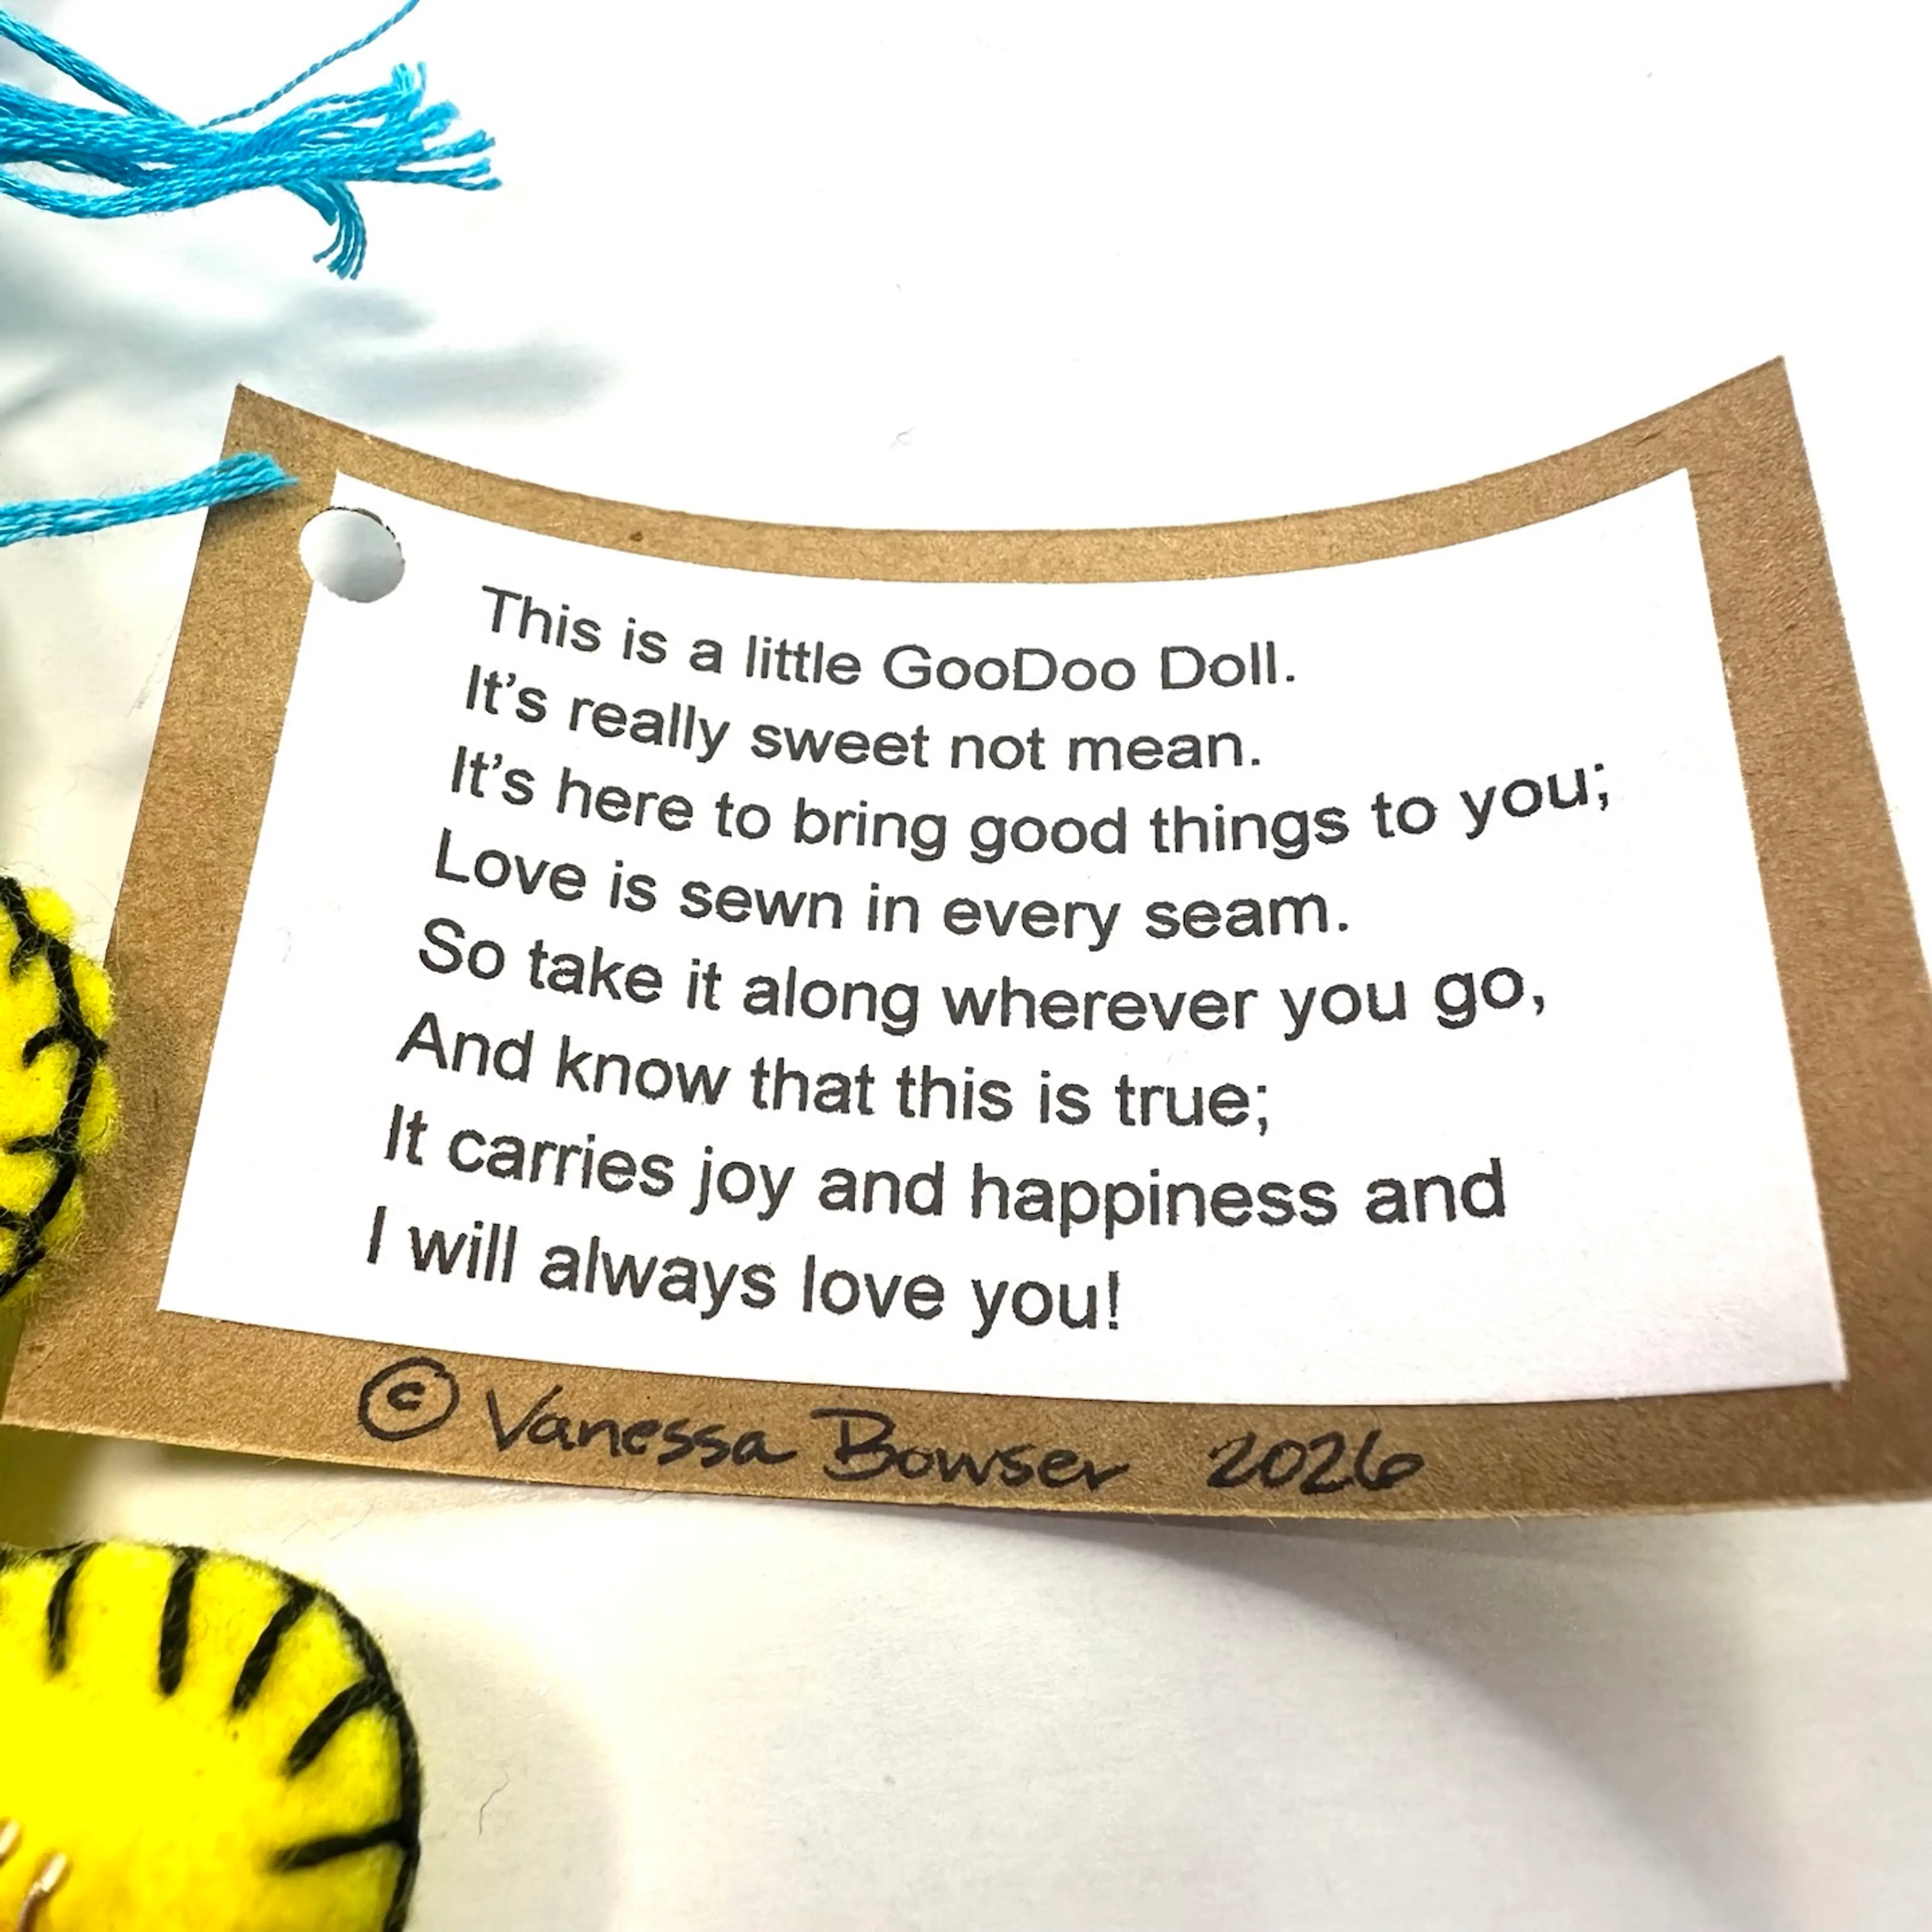 This is a little GooDoo Doll.
It’s really sweet not mean.
It’s here to bring good things to you;
Love is sewn in every seam.
So take it along wherever you go,
And know that this is true;
It carries joy and happiness and
I will always love you!
© Vanessa Bowser 2026